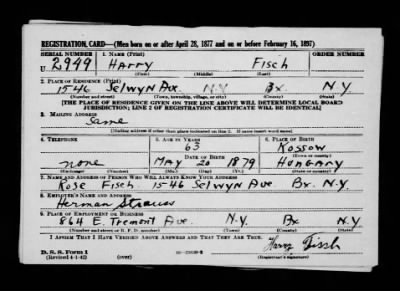 REGISTRATION CARD—(Men born on or after April 28, 1877 and on or before February 16, 1897)
SERIAL NUMBER 1. NAME (Print) ORDER NUMBER
U 2949 Harry Fisch
(First) (Middle) (Last)
2. PLACE OF RESIDENCE (Print)
1546 Selwyn Ave. N.Y. Bx. N.Y.
(Number and street) (Town, township, village, or city) (County) (State)
[THE PLACE OF RESIDENCE GIVEN ON THE LINE ABOVE WILL DETERMINE LOCAL BOARD
JURISDICTION; LINE 2 OF REGISTRATION CERTIFICATE WILL BE IDENTICAL]
3. MAILING ADDRESS
Same
[Mailing address if other than place indicated on line 2. If same insert word same]
4. TELEPHONE 5. AGE IN YEARS 6. PLACE OF BIRTH
63 Kossow
DATE OF BIRTH (Town or county)
none May 20 1879 Hungary
(Exchange) (Number) (Mo.) (Day) (Yr.) (State or country)
7. NAME AND ADDRESS OF PERSON WHO WILL ALWAYS KNOW YOUR ADDRESS
Rose Fisch 1546 Selwyn Ave Bx. N.Y.
8. EMPLOYER'S NAME AND ADDRESS
Herman Strauss
9. PLACE OF EMPLOYMENT OR BUSINESS
864 E Tremont Ave. N.Y. Bx N.Y.
(Number and street or R. F. D. number) (Town) (County) (State)
I AFFIRM THAT I HAVE VERIFIED ABOVE ANSWERS AND THAT THEY ARE TRUE.
D. S. S. Form 1 Harry Fisch
(Revised 4-1-42) (Registrant's signature)